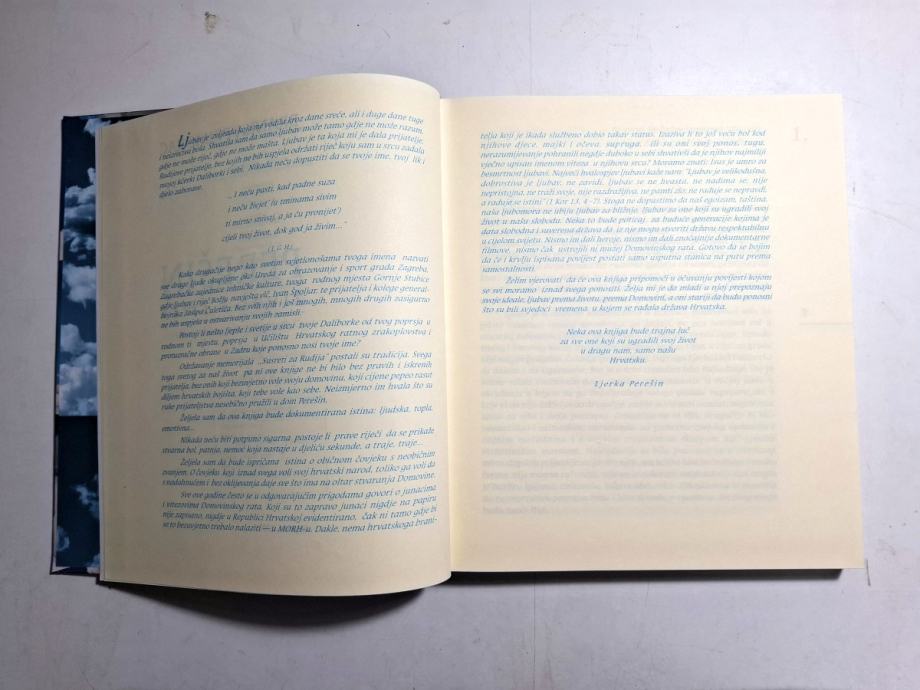 Ljubav je zvijezda koja me vodila kroz dane sreće, ali i duge dane tuge
i neizrečiva bola. Shvatila sam da samo ljubav može tamo gdje ne može razum,
gdje ne može riječ, gdje ne može mašta. Ljubav je ta koja mi je dala prijatelje,
Rudijeve prijatelje, bez kojih ne bih uspjela održati riječ koju sam u srcu zadala
tvojoj kćerki Daliborki i sebi. Nikada neću dopustiti da se tvoje ime, tvoj lik i
djelo zaborave.
„... I neću pasti, kad padne suza
i neću živjet' (u tminama sivim
ti mirno snivaj, a ja ću pronijet')
cijeli tvoj život, dok god ja živim..."
(I. G. H.)
Kako drugačije nego kao svetim svjetionošama tvoga imena nazvati
sve drage ljude okupljene oko Ureda za obrazovanje i sport grada Zagreba,
Zagrebačke zajednice tehničke kulture, tvoga rodnog mjesta Gornje Stubice
gdje ljubav i riječ Božju navješta vlč. Ivan Špoljar, te prijatelja i kolege general-
bojnika Josipa Čuletića. Bez svih njih i još mnogih, mnogih drugih zasigurno
ne bih uspjela u ostvarivanju svojih zamisli.
Postoji li nešto ljepše i svetije u srcu tvoje Daliborke od tvog poprsja u
rodnom ti mjestu, poprsja u Učilištu Hrvatskog ratnog zrakoplovstva i
protuzračne obrane u Zadru koje ponosno nosi tvoje ime?
Održavanje memorijala „Susreti za Rudija" postali su tradicija. Svega
toga svetog za naš život pa ni ove knjige ne bi bilo bez pravih i iskrenih
prijatelja, bez onih koji bezuvjetno vole svoju domovinu, koji cijene pepeo rasut
diljem hrvatskih bojišta, koji tebe vole kao sebe. Neizmjerno im hvala što su
ruke prijateljstva nesebično pružili u dom Perešin.
Željela sam da ova knjiga bude dokumentirana istina: ljudska, topla,
emotivna...
Nikada neću biti potpuno sigurna postoje li prave riječi da se prikaže
stvarna bol, patnja, nemoć koja nastaje u djeliću sekunde, a traje, traje...
Željela sam da bude ispričana istina o običnom čovjeku s neobičnim
zvanjem. O čovjeku koji iznad svega voli svoj hrvatski narod, toliko ga voli da
s nadahnućem i bez oklijevanja daje sve što ima na oltar stvaranja Domovine.
Sve ove godine često je u odgovarajućim prigodama govori o junacima
i vitezovima Domovinskog rata. Koji su to zapravo junaci nigdje na papiru
nije zapisano, nigdje u Republici Hrvatskoj evidentirano, čak ni tamo gdje bi
se to bezuvjetno trebalo nalaziti — u MORH-u. Dakle, nema hrvatskoga brani-
telja koji je ikada službeno dobio takav status. Izaziva li to još veću bol kod
njihove djece, majki i očeva, supruga. Ili su oni svoj ponos, tugu,
nerazumijevanje pohranili negdje duboko u sebi shvativši da je njihov najmiliji
vječno upisan imenom viteza u njihovu srcu? Moramo znati: Isus je umro za
besmrtnost ljubavi. Najveći hvalospjev ljubavi kaže nam: "Ljubav je velikodušna,
dobrostiva je ljubav, ne zavidi, ljubav se ne hvasta, ne nadima se, nije
nepristojna, ne traži svoje, nije razdražljiva, ne pamti zlo; ne raduje se nepravdi,
a raduje se istini" (1 Kor 13, 4 -7). Stoga ne dopustimo da naš egoizam, taština,
naša ljubomora ne ubiju ljubav za bližnje, ljubav za one koji su ugradili svoj
život u našu slobodu. Neka to bude poticaj, za buduće generacije kojima je
data slobodna i suverena država da iz nje mogu stvoriti državu respektabilnu
u cijelom svijetu. Nismo im dali heroje, nismo im dali značajnije dokumentarne
filmove, nismo čak ustrojili ni muzej Domovinskog rata. Gotovo da se bojim
da će i krvlju ispisana povijest postati samo usputna stanica na putu prema
samostalnosti.
Želim vjerovati da će ova knjiga pripomoći u očuvanju povijesti kojom
se svi moramo iznad svega ponositi. Želja mi je da mladi u njoj prepoznaju
svoje ideale, ljubav prema životu, prema Domovini, a oni stariji da budu ponosni
što su bili svjedoci vremena, u kojem se rađala država Hrvatska.
Neka ova knjiga bude trajna luč
za sve one koji su ugradili svoj život
u dragu nam, samo našu
Hrvatsku.
Ljerka Perešin